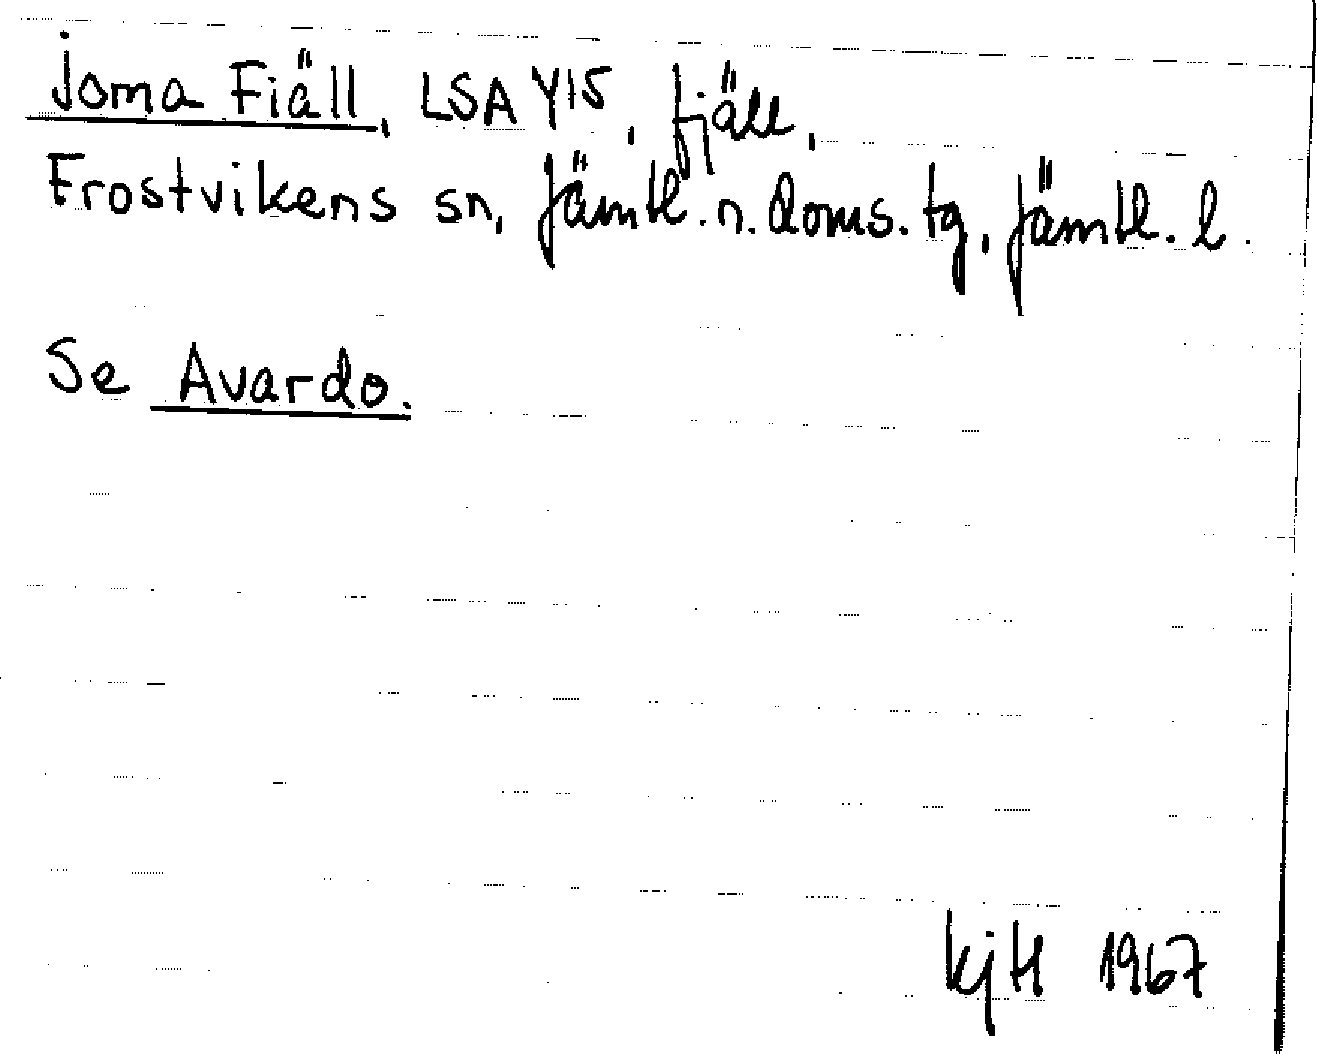 Joma Fiäll, LSA Y15, fjäll,
Frostvikens sn, Jämtl. n. doms. tg, Jämtl. l.
Se Avardo.
KjH 1967